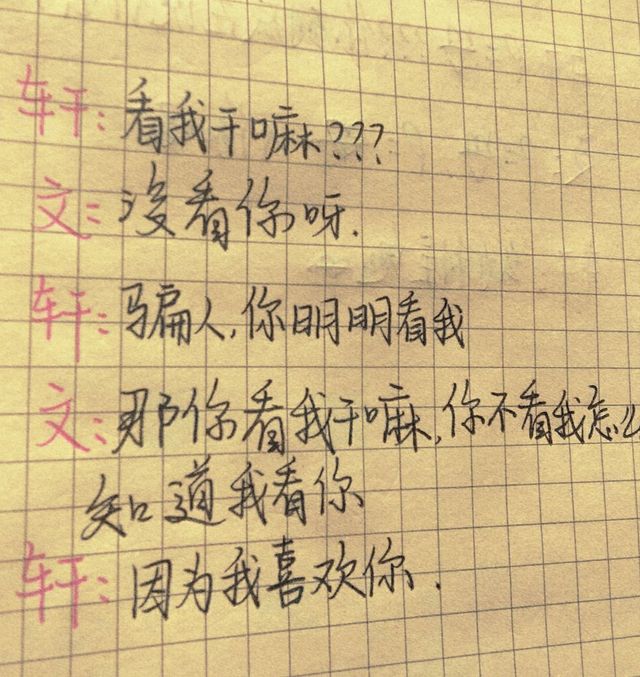 轩:看我干嘛???
文:没看你呀.
轩:骗人,你明明看我
文:那你看我干嘛,你不看我怎么
知道我看你
轩:因为我喜欢你.